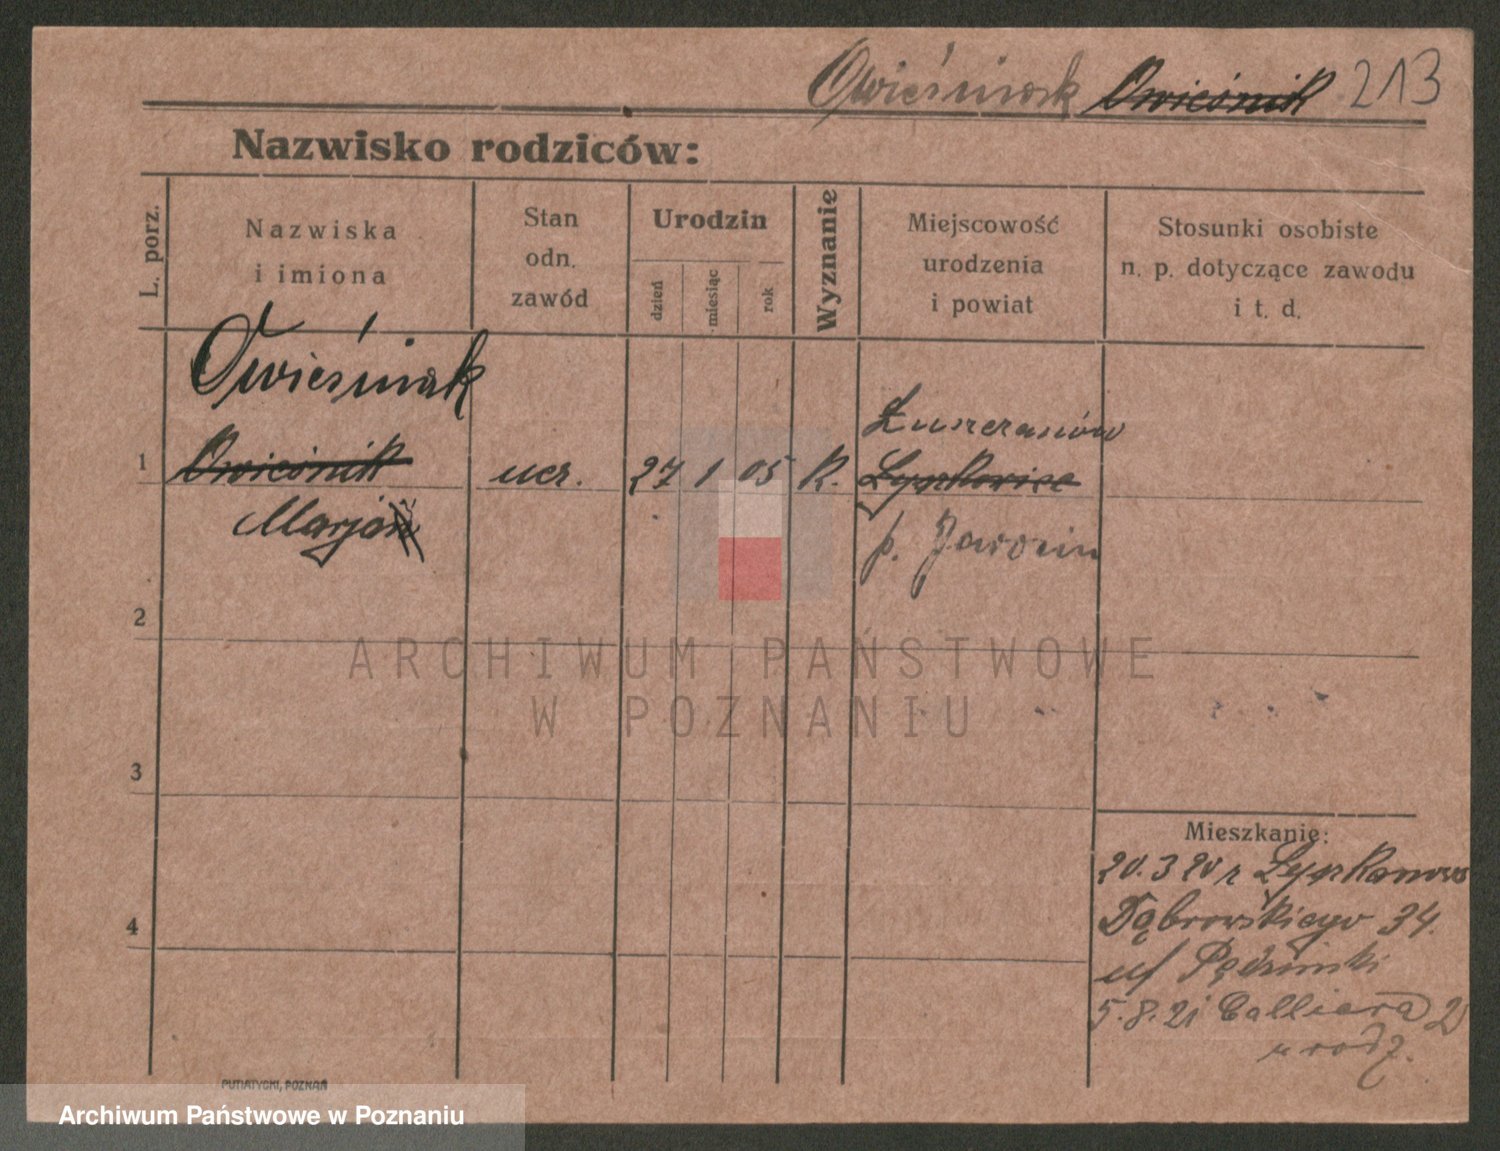 Owieśniak Owieśnik 213
Nazwisko rodziców:
L. porz.
Nazwiska
i imiona
Stan
odn.
zawód
Urodzin
dzień
miesiąc
rok
Wyznanie
Miejscowość
urodzenia
i powiat
Stosunki osobiste
n. p. dotyczące zawodu
i t. d.
Owieśniak
1 Owieśnik ucz. 27 1 05 K.
Marjan
Łuszczanów
p. Jarocin
2
3
4
Mieszkanie:
20.3 20 z
Dąbrowskiego 34.
5.8.21 Calliera
u rodz.
PUTIATYCKI, POZNAŃ
ARCHIWUM PAŃSTWOWE
W POZNANIU
Archiwum Państwowe w Poznaniu